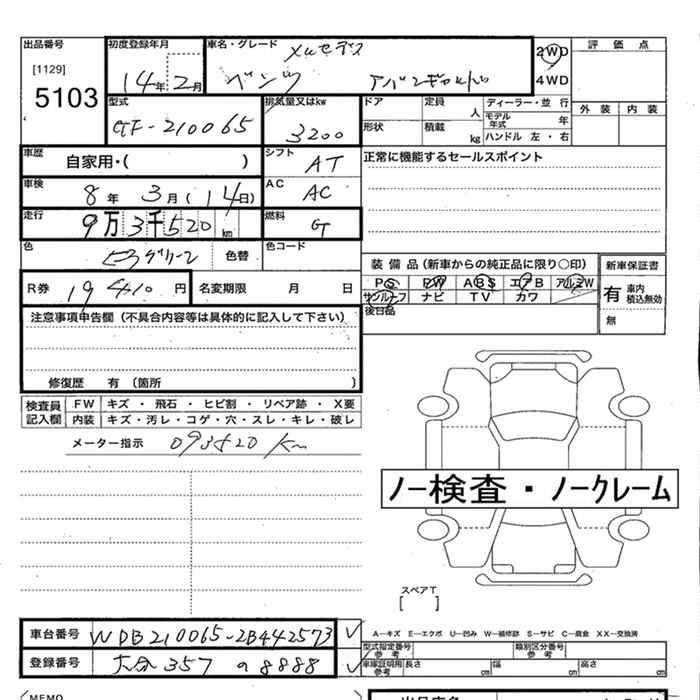 出品番号
[1129]
5103
初度登録年月
14年2月
車名・グレード
メルセデス
ベンツ アバンギャルド
2WD
4WD
評価点
外装 内装
型式
GF-210065
排気量又はkw
3200
ドア
定員
人
形状
積載
kg
ディーラー・並行
モデル年式
年
ハンドル 左・右
車歴
自家用・( )
シフト
AT
正常に機能するセールスポイント
車検
8年3月(14日)
AC
AC
走行
9万3千520km
燃料
G
色
グリーン
色替
色コード
装備品(新車からの純正品に限り○印)
PS PW ABS エアB アルミW
サンルーフ ナビ TV カワ
後日品
新車保証書
有 車内積込無効
無
R券
19410円
名変期限 月 日
注意事項申告欄(不具合内容等は具体的に記入して下さい)
修復歴 有(箇所 )
検査員記入欄
FW キズ・飛石・ヒビ割・リペア跡・X要
内装 キズ・汚レ・コゲ・穴・スレ・キレ・破レ
メーター指示 093520 Km
ノー検査・ノークレーム
スペアT
[ ]
車台番号 WDB210065-2B442573
登録番号 大分 357 の 8888
A―キズ E―エクボ U―凹み W―補修跡 S―サビ C―腐食 XX―交換済
型式指定番号
参考
類別区分番号
車庫証明用
参考
長さ cm 幅 cm 高さ cm
MEMO